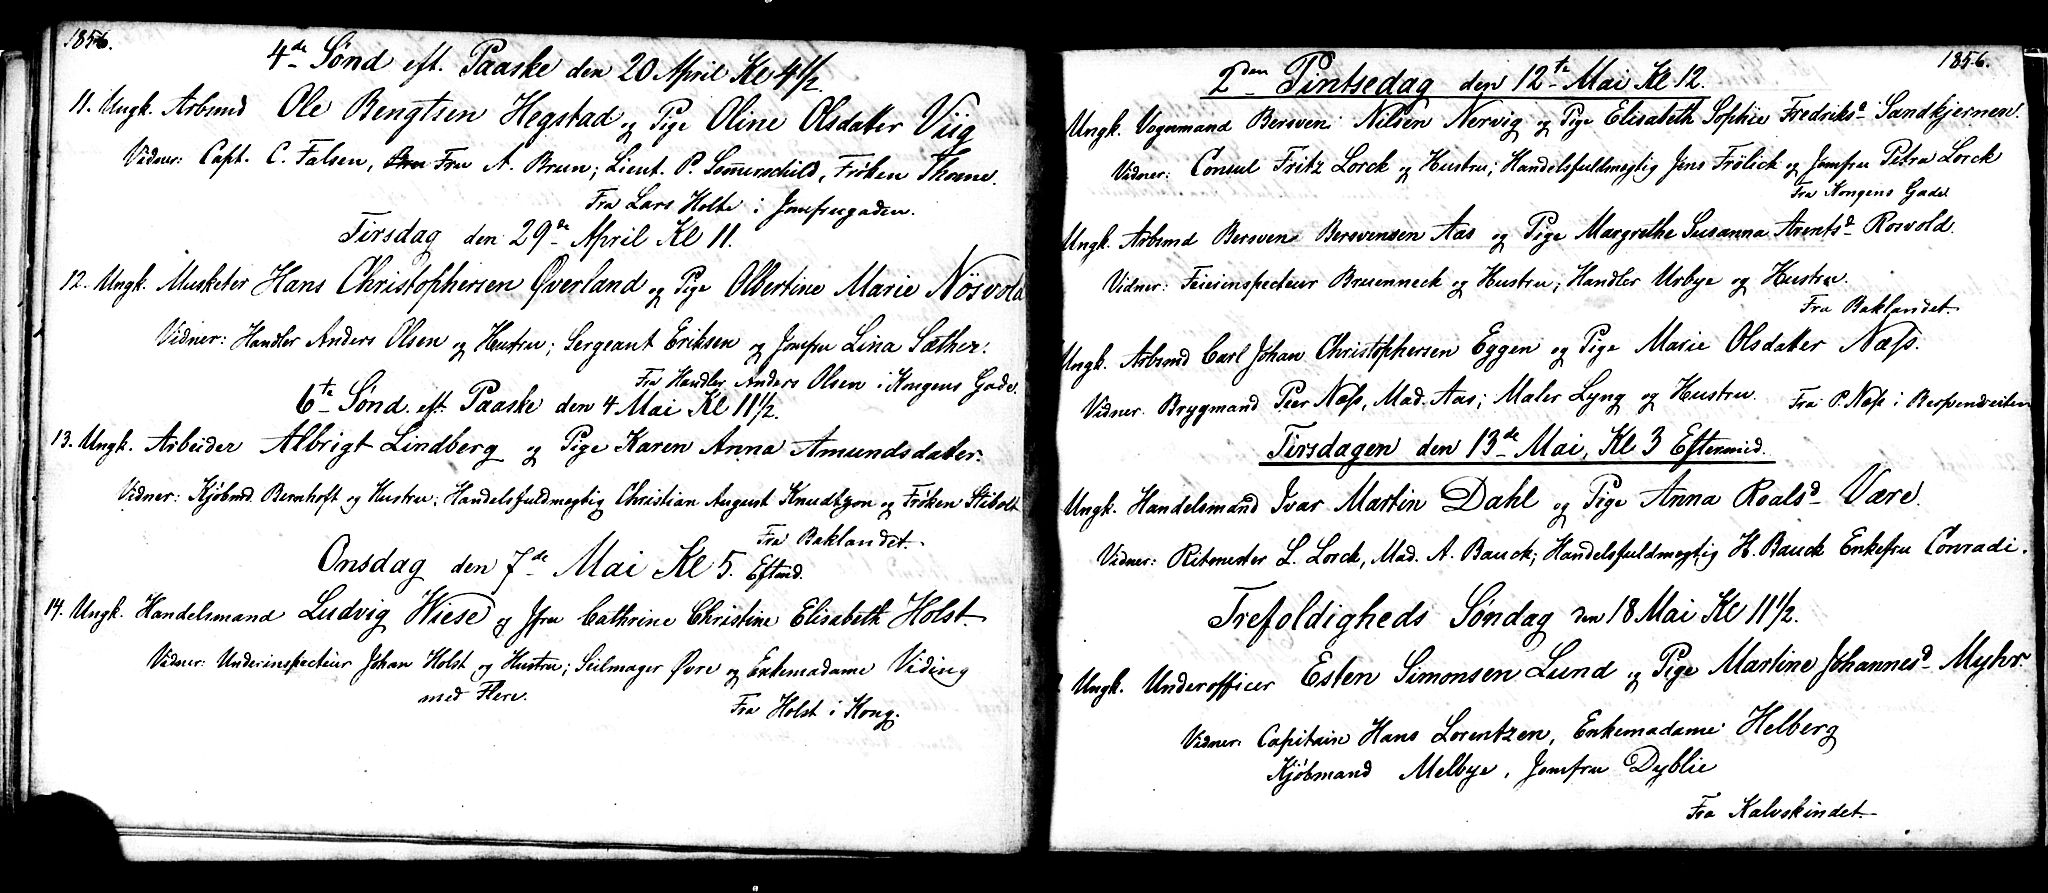 1856.
4de Sønd eft. Paaske den 20 April Kl 4 1/2.
11. Ungk. Arbmd Ole Bengtsen Hegstad og Pige Oline Olsdatter Viig
Vidner: Capt. C. Falsen, Fru A. Brun; Lieut. P. Sommerschild, Frøken Thonne.
Fra Lars Holte i Jomfrugaden.
Tirsdag den 29de April Kl 11.
12. Ungk. Musketer Hans Christophersen Øverland og Pige Olbertine Marie Nøsvold
Vidner: Handler Anders Olsen og Hustru; Sergeant Eriksen og Jomfru Lina Sæther.
Fra Handler Anders Olsen i Kongens Gade.
6te Sønd. eft. Paaske den 4 Mai Kl 11 1/2.
13. Ungk. Arbeider Albrigt Lindberg og Pige Karen Anna Amundsdatter.
Vidner: Kjøbmd Bernhoft og Hustru; Handelsfuldmegtig Christian August Knudtzon og Frøken Stibolt
Fra Baklandet.
Onsdag den 7de Mai Kl 5. Eftmd.
14. Ungk. Handelsmand Ludvig Wiese og Jfru Cathrine Christine Elisabeth Holst
Vidner: Underinspecteur Johan Holst og Hustru; Seilmager Øvre og Enkemadame Viding
med Flere.
Fra Holst i Kong.
1856.
2den Pintsedag den 12te Mai Kl 12.
Ungk. Vognmand Bersven Nilsen Nervig og Pige Elisabeth Sophie Fredriksd Sandkjernen.
Vidner: Consul Fritz Lorck og Hustru; Handelsfuldmegtig Jens Frølick og Jomfru Petra Lorck
Fra Kongens Gade
Ungk. Arbmd Bersven Bersvensen Aas og Pige Margrethe Susanna Arentsd Rosvold.
Vidner: Feierinspecteur Bruenneck og Hustru; Handler Urbye og Hustru.
Fra Baklandet.
Ungk. Arbmd Carl Johan Christophersen Eggen og Pige Marie Olsdatter Næss.
Vidner. Brygmand Peer Næss, Mad. Aas; Maler Lyng og Hustru. Fra P. Næss i
Tirsdagen den 13de Mai, Kl 3 Eftermid.
Ungk. Handelsmand Ivar Martin Dahl og Pige Anna Roalsd Være.
Vidner: Ritmester L. Lorck, Mad. A. Bauck; Handelsfuldmegtig H. Bauck Enkefru Conradi.
Trefoldigheds Søndag den 18 Mai Kl 11 1/2.
Ungk. Underofficer Esten Simonsen Lund og Pige Martine Johannesd Myhr
Vidner: Capitain Hans Lorentzen, Enkemadame Helberg
Kjøbmand Melbye, Jomfru Dyblie
Fra Kalvskindet